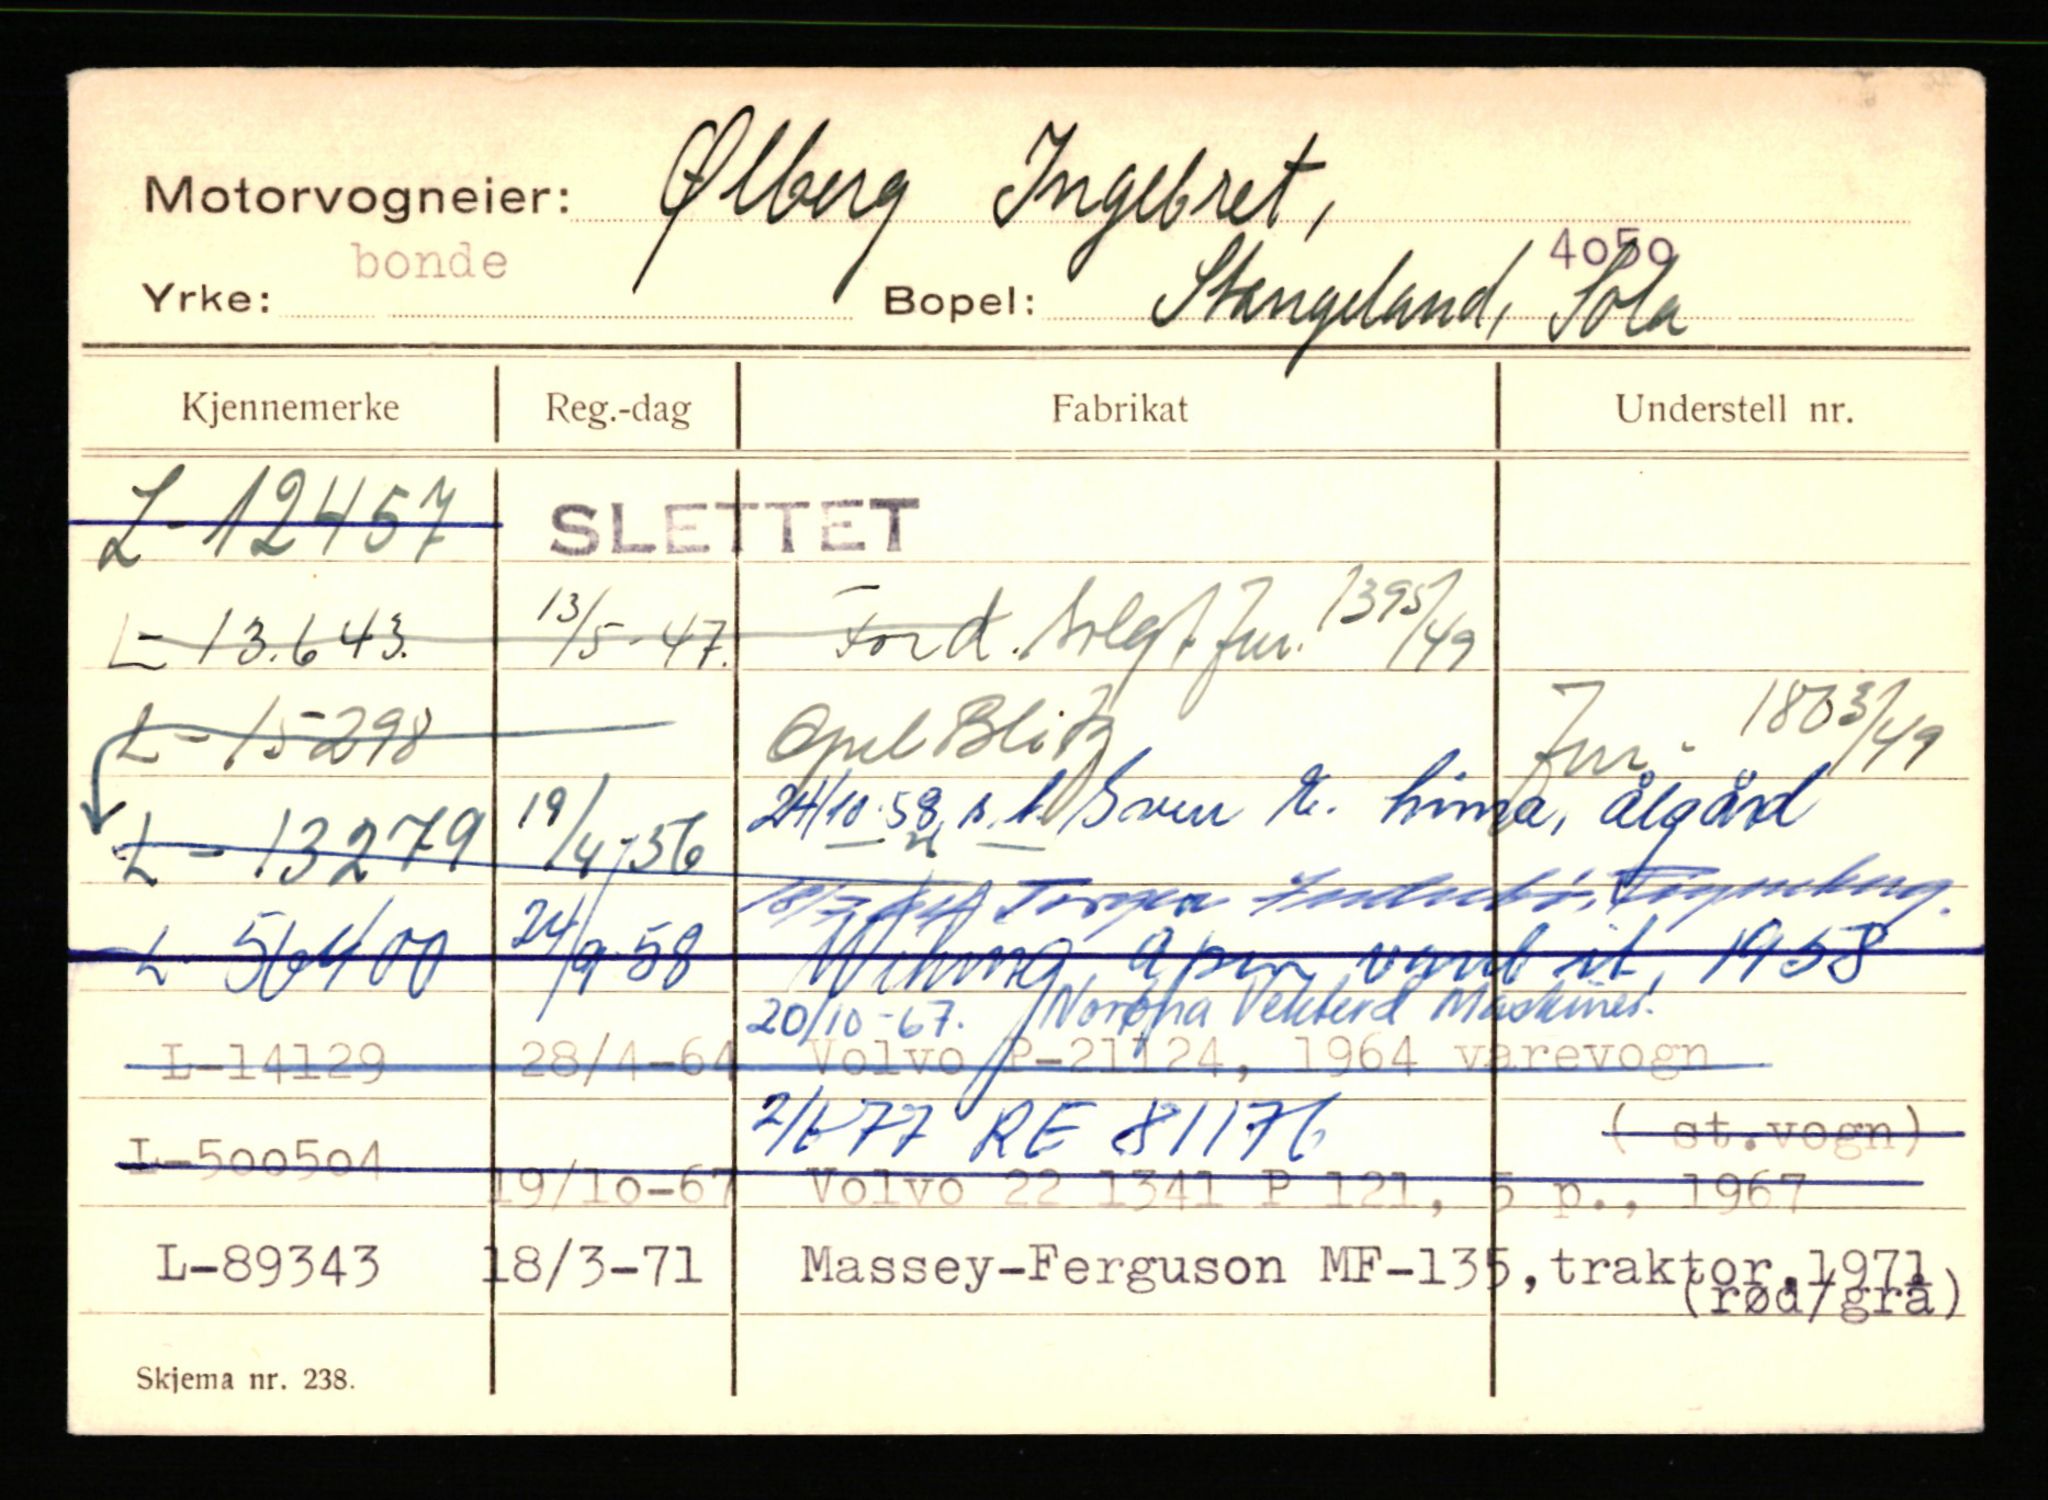 Motorvogneier: Ølberg Ingebret,
bonde 4050
Yrke: Bopel: Stangeland, Sola
Kjennemerke Reg.-dag Fabrikat Understell nr.
L-12457 SLETTET
L-13.643. 13/5-47. Ford. Solgt Jnr. 1395/49
L-15298 Opel Blitz Jnr. 1803/49
24/10.58 Sven Lima, ålgård
L-13279 19/4-56
L-56400 24/9-58 åpen 1958
20/10-67.
L-14129 28/4-64 Volvo P-21124, 1964 varevogn
2/6-77 RE 81176 ( st.vogn)
L-500504 19/10-67 Volvo 22 1341 P 121, 5 p., 1967
L-89343 18/3-71 Massey-Ferguson MF-135, traktor, 1971
(rød/grå)
Skjema nr. 238.